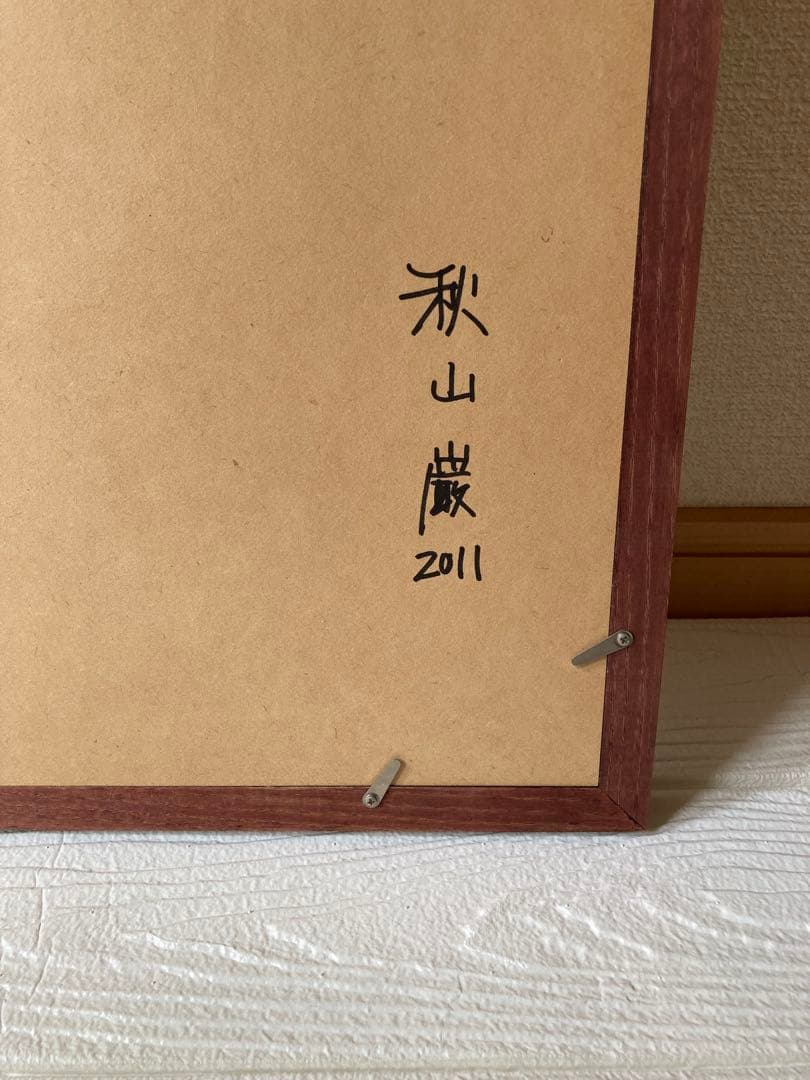 秋山巌
2011